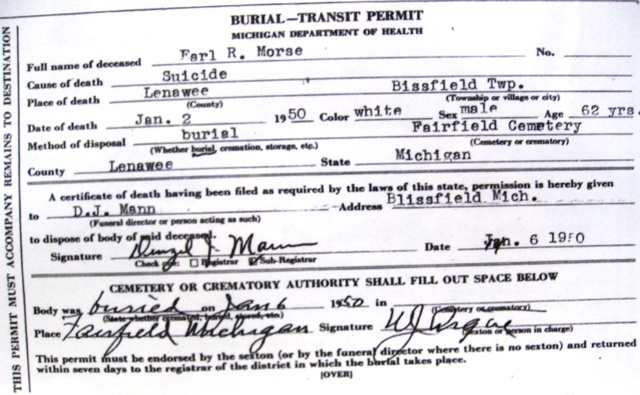 BURIAL—TRANSIT PERMIT
MICHIGAN DEPARTMENT OF HEALTH
Full name of deceased Earl R. Morse No.
Cause of death Suicide
Place of death Lenawee Bissfield Twp.
(County) (Township or village or city)
Date of death Jan. 2 1950 Color white Sex male Age 62 yrs.
Method of disposal burial Fairfield Cemetery
(Whether burial, cremation, storage, etc.) (Cemetery or crematory)
County Lenawee State Michigan
A certificate of death having been filed as required by the laws of this state, permission is hereby given
to D.J. Mann Address Blissfield Mich.
(Funeral director or person acting as such)
to dispose of body of said deceased.
Signature Denzel J. Mann Date Jan. 6 1950
Check one: Registrar Sub-Registrar
CEMETERY OR CREMATORY AUTHORITY SHALL FILL OUT SPACE BELOW
Body was buried on Jan 6 1950 in
(State whether cremated, buried, stored, etc.) (Cemetery or crematory)
Place Fairfield Michigan Signature
(Sexton or person in charge)
This permit must be endorsed by the sexton (or by the funeral director where there is no sexton) and returned
within seven days to the registrar of the district in which the burial takes place.
[OVER]
THIS PERMIT MUST ACCOMPANY REMAINS TO DESTINATION